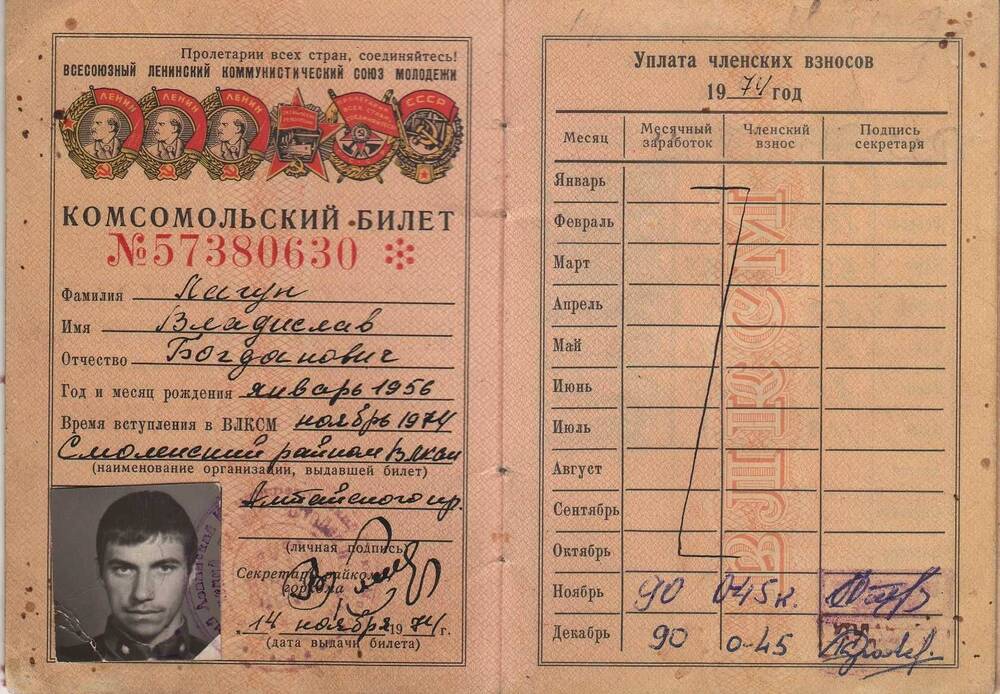 Пролетарии всех стран, соединяйтесь!
ВСЕСОЮЗНЫЙ ЛЕНИНСКИЙ КОММУНИСТИЧЕСКИЙ СОЮЗ МОЛОДЕЖИ
ЛЕНИН ЛЕНИН ЛЕНИН СССР
КОМСОМОЛЬСКИЙ БИЛЕТ
№57380630
Фамилия Лагун
Имя Владислав
Отчество Богданович
Год и месяц рождения январь 1956
Время вступления в ВЛКСМ ноябрь 1974
Смоленский райком ВЛКСМ
(наименование организации, выдавшей билет)
Алтайского кр.
(личная подпись)
Секретарь райкома
горкома
14 ноября 1974 г.
(дата выдачи билета)
Уплата членских взносов
1974 год
Месяц Месячный заработок Членский взнос Подпись секретаря
Январь
Февраль
Март
Апрель
Май
Июнь
Июль
Август
Сентябрь
Октябрь
Ноябрь 90 0-45 к.
Декабрь 90 0-45
ВЛКСМ